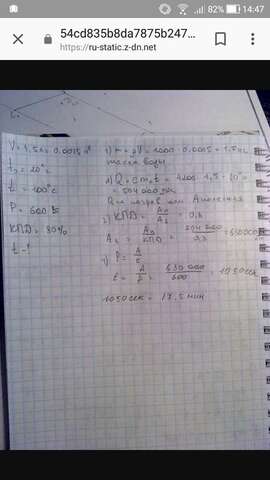 82%
14:47
54cd835b8da7875b247...
https://ru-static.z-dn.net
V = 1,5л = 0.0015 м³
t₀ = 20°C
t = 100°C
P = 600 Вт
КПД = 80%
t - ?
1) m = ρV = 1000 · 0.0015 = 1.5 кг
масса воды
2) Q = c m t = 4200 · 1,5 · 80°C
= 504 000 Дж
3) КПД = Aп/Aз = 0,8
Aз = Aп/КПД = 504 000/0,8 = 630000
4) P = A/t
t = A/P = 630 000/600 = 1050 сек
1050 сек = 17,5 мин